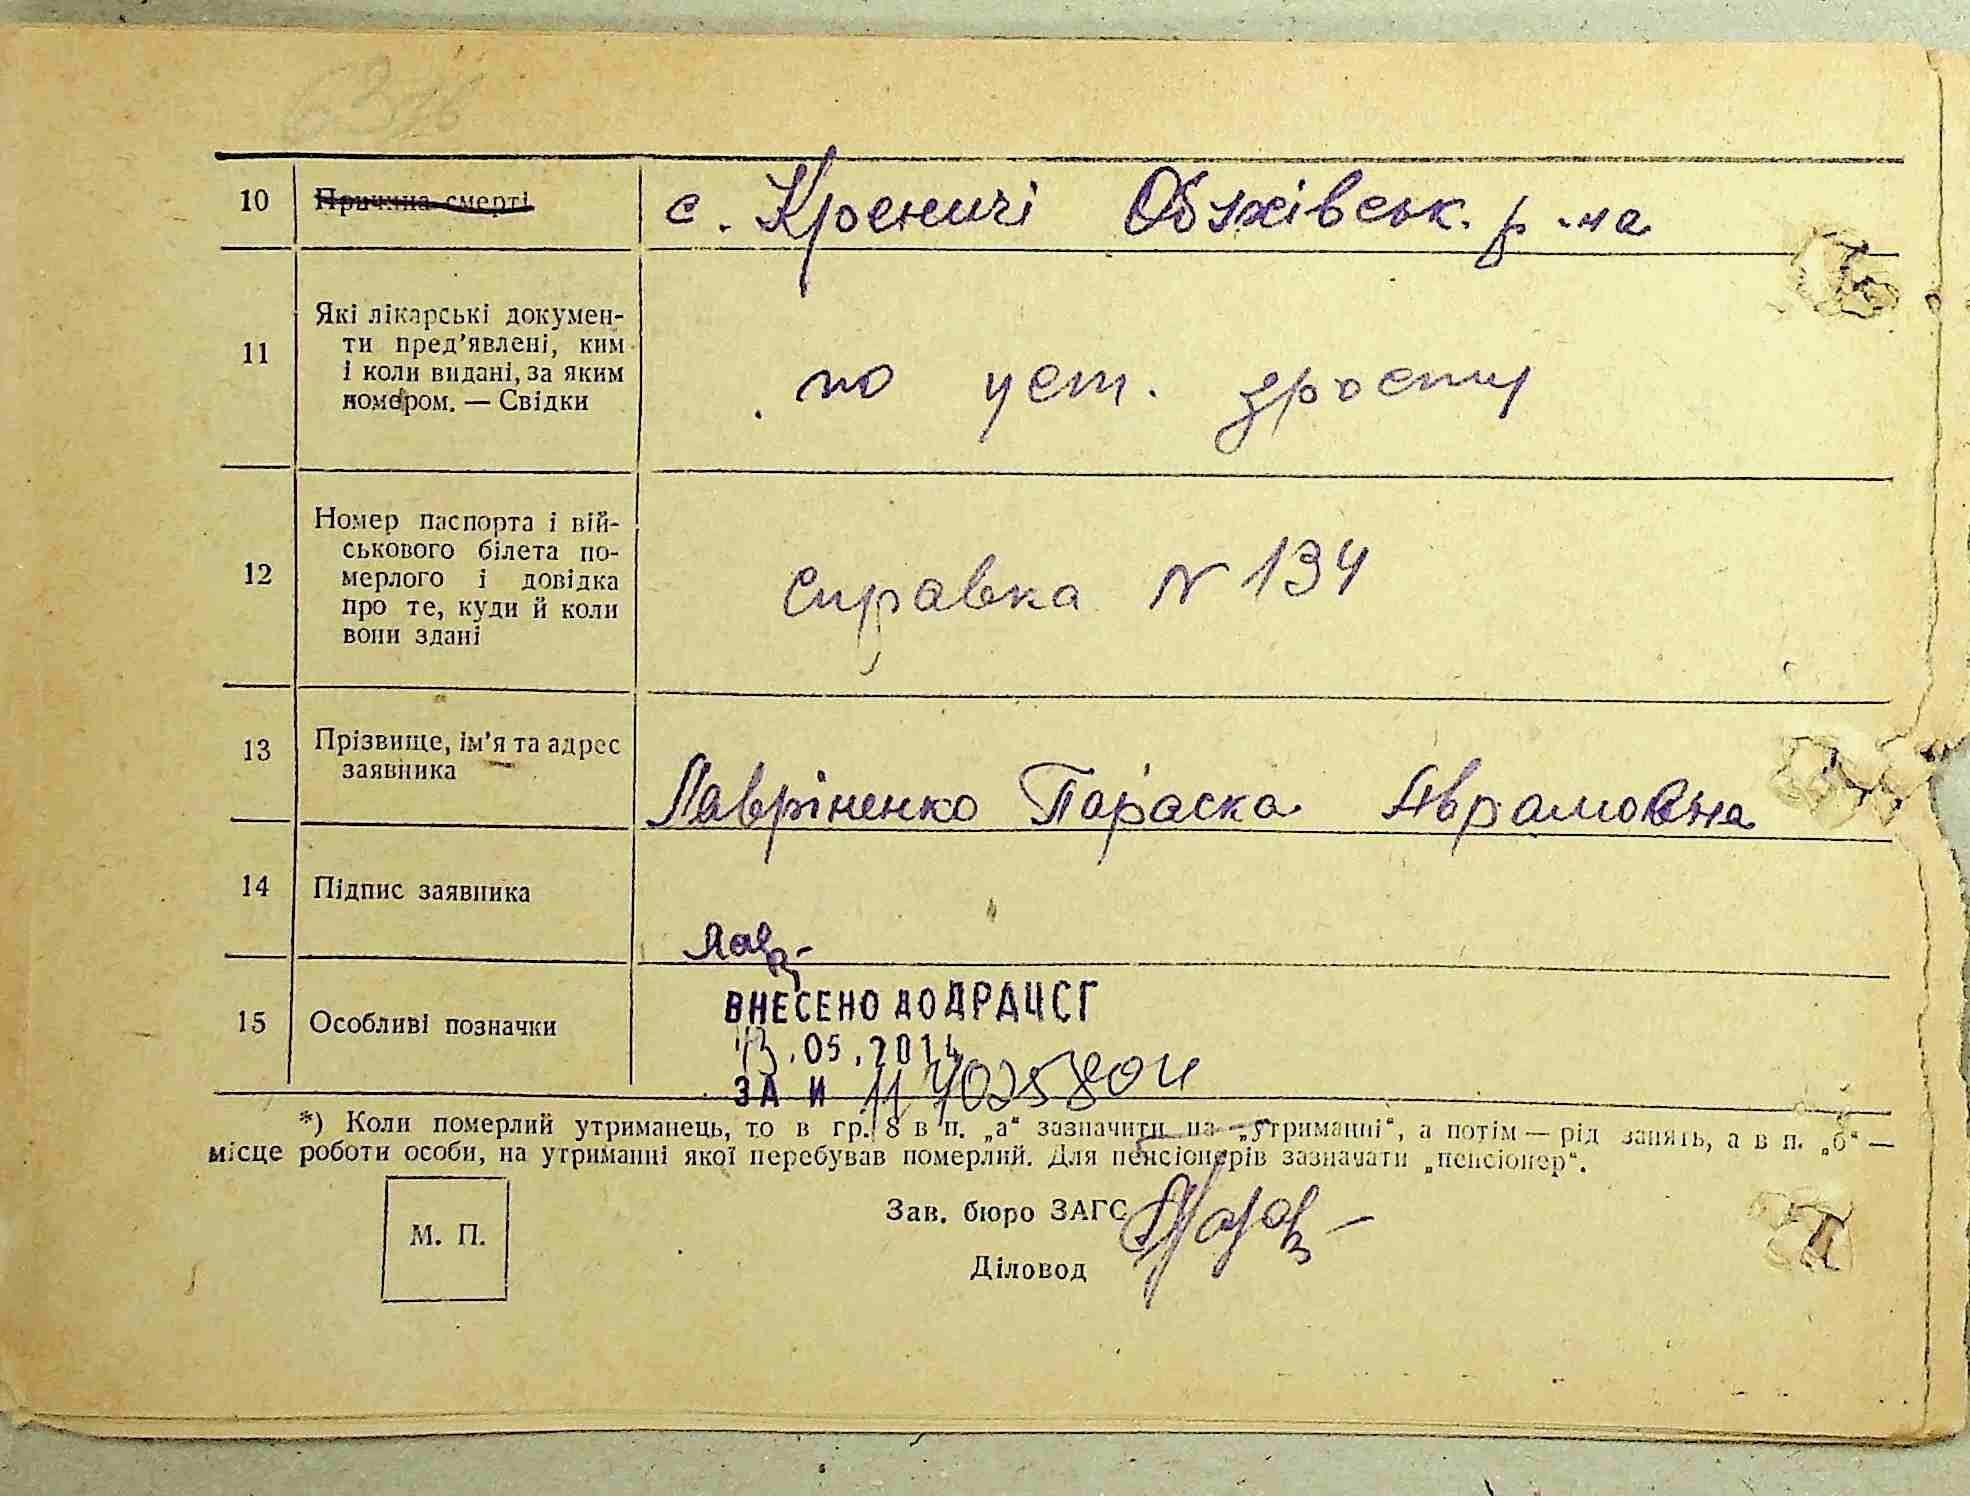 10 Причина смерті с. Креничі Обухівськ. р-на
11 Які лікарські докумен-
ти пред'явлені, ким
і коли видані, за яким
номером. — Свідки
по уст. зросту
12 Номер паспорта і вій-
ськового білета по-
мерлого і довідка
про те, куди й коли
вони здані
справка N 134
13 Прізвище, ім'я та адрес
заявника
Лавріненко Параска Аврамовна
14 Підпис заявника
Лав
ВНЕСЕНО ДО ДРАЦСГ
15 Особливі позначки
13.05.2014
ЗА И
*) Коли померлий утриманець, то в гр. 8 в п. „а“ зазначити на „утриманні“, а потім — рід занять, а в п. „б“ —
місце роботи особи, на утриманні якої перебував померлий. Для пенсіонерів зазначати „пенсіонер“.
М. П.
Зав. бюро ЗАГС
Діловод